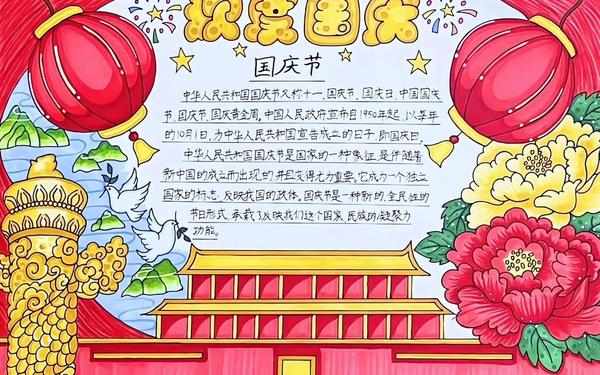 欢度国庆
国庆节
中华人民共和国国庆节又称十一、国庆节、国庆日、中国国庆
节、国庆节、国庆黄金周。中国人民政府宣布自1950年起,以每年
的10月1日,为中华人民共和国宣告成立的日子,即国庆日。
中华人民共和国国庆节是国家的一种象征,是伴随着
新中国的成立而出现的,并且变得尤为重要。它成为一个独立
国家的标志,反映我国的政体。国庆节是一种新的、全民性的
节日形式,承载了反映我们这个国家、民族的凝聚力
功能。